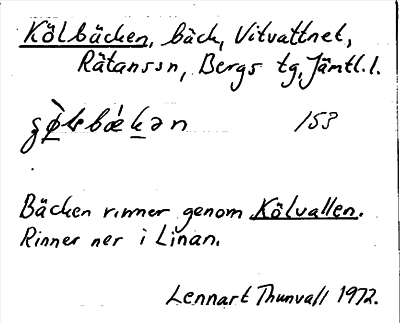 Kölbäcken, bäck, Vitvattnet,
Rätanssn, Bergs tg, Jämtl.l.
153
Bäcken rinner genom Kölvallen.
Rinner ner i Linan.
Lennart Thunvall 1972.